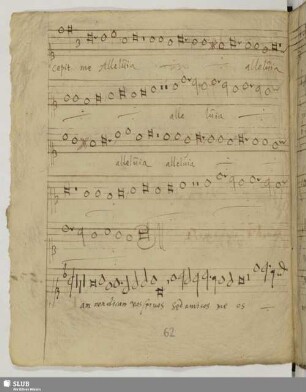 cepit me Alleluia alleluia
alle luia
alleluia alleluia
am non dicam vos servos sed amicos me os
62
SLUB
Wir führen Wissen.